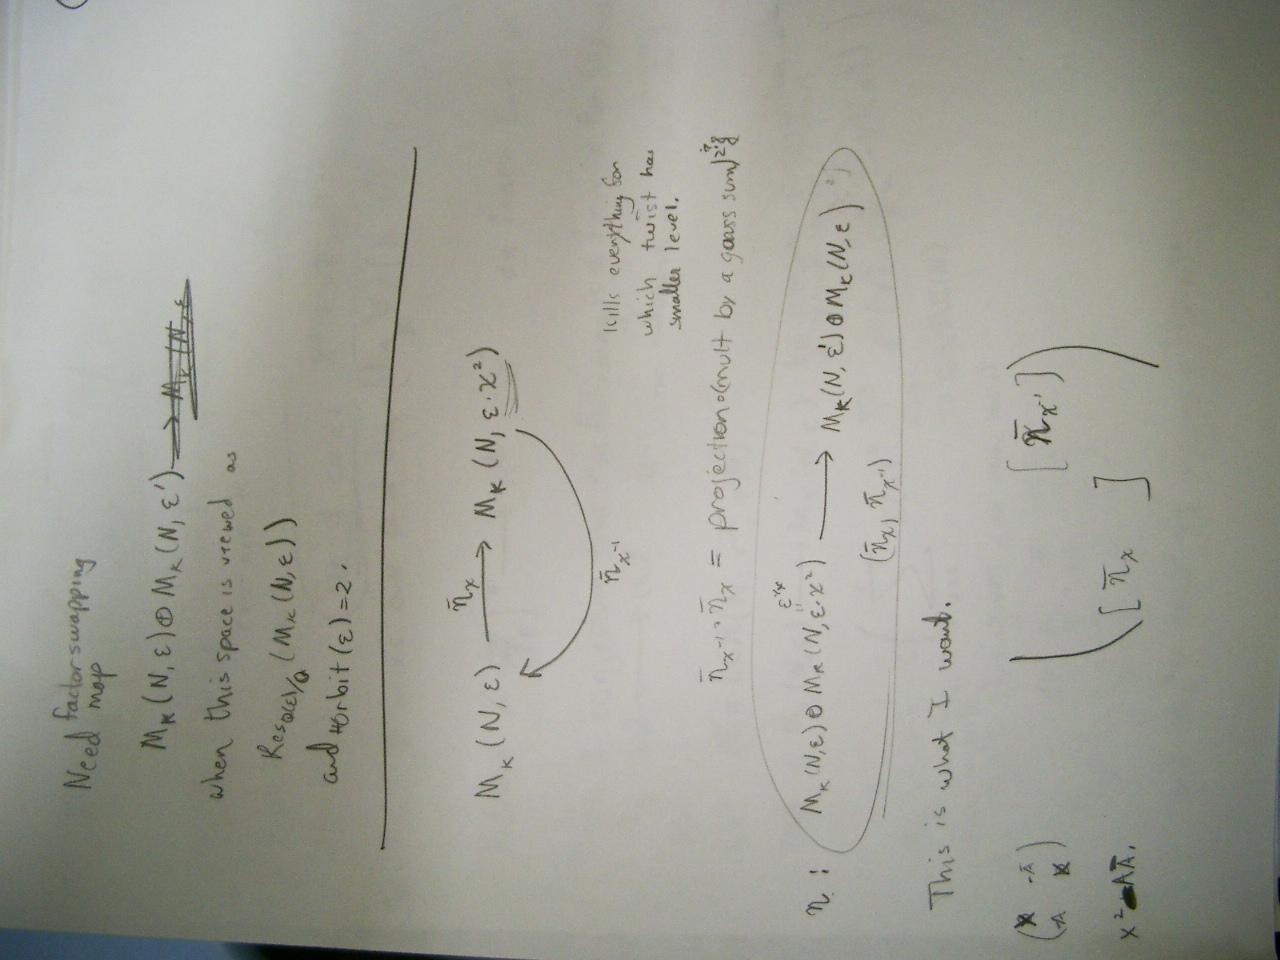 Need factor swapping
map
M_K(N, ε) ⊕ M_K(N, ε') → M_K(N, ε
when this space is viewed as
Res_{Q(ε)/Q} (M_K(N, ε))
and #orbit(ε)=2.
M_K(N, ε) —η̄_χ→ M_K(N, ε·χ²)
η̄_{χ⁻¹}
kills everything for
which twist has
smaller level.
η̄_{χ⁻¹} ∘ η̄_χ = projection ∘ (mult by a gauss sum)
η : M_K(N,ε) ⊕ M_K(N, ε·χ²) → M_K(N, ε') ⊕ M_K(N, ε)
(η̄_χ, η̄_{χ⁻¹})
This is what I want.
( [η̄_{χ⁻¹}]
[η̄_χ ] )
(x -Ā
-A x)
x² - AĀ.